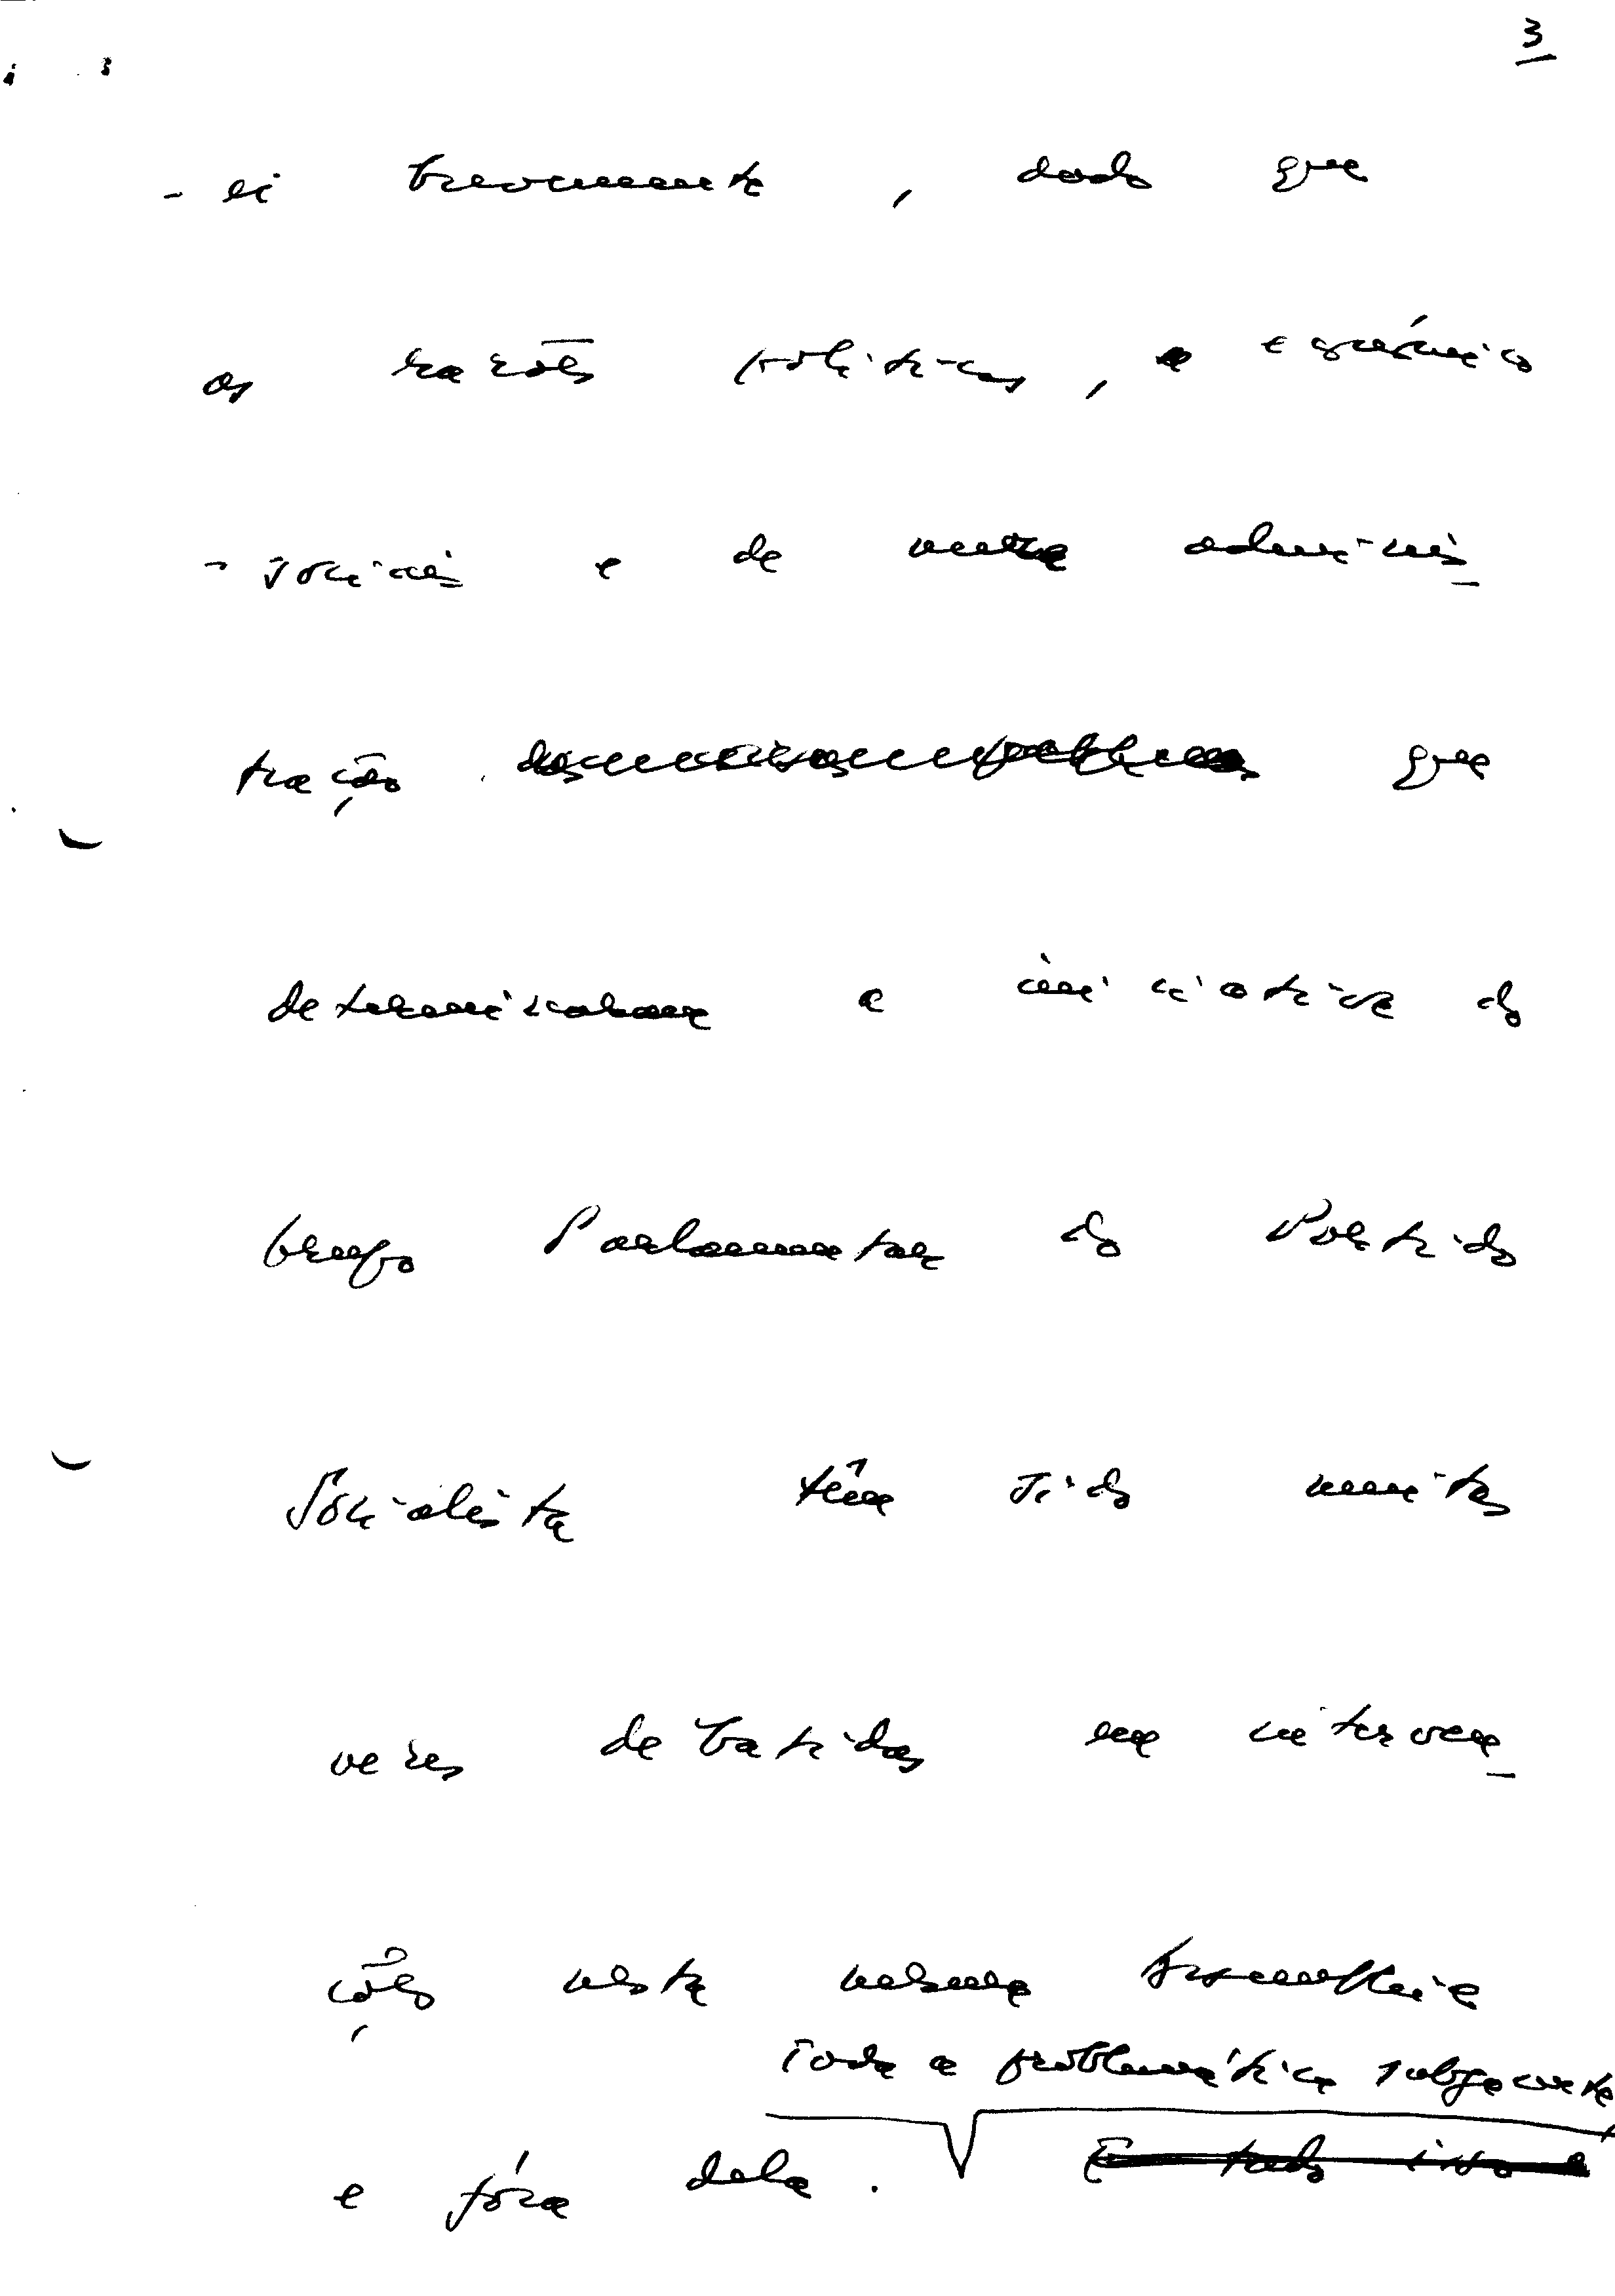 3
-ei brevemente, dado que
as razões políticas, económico
-sociais e de mera adminis-
tração que
determinaram a iniciativa do
Grupo Parlamentar do Partido
Socialista têm sido muitas
vezes debatidas em interven-
ções nesta mesma Assembleia
Toda a problemática subjacente
e fóra dela.